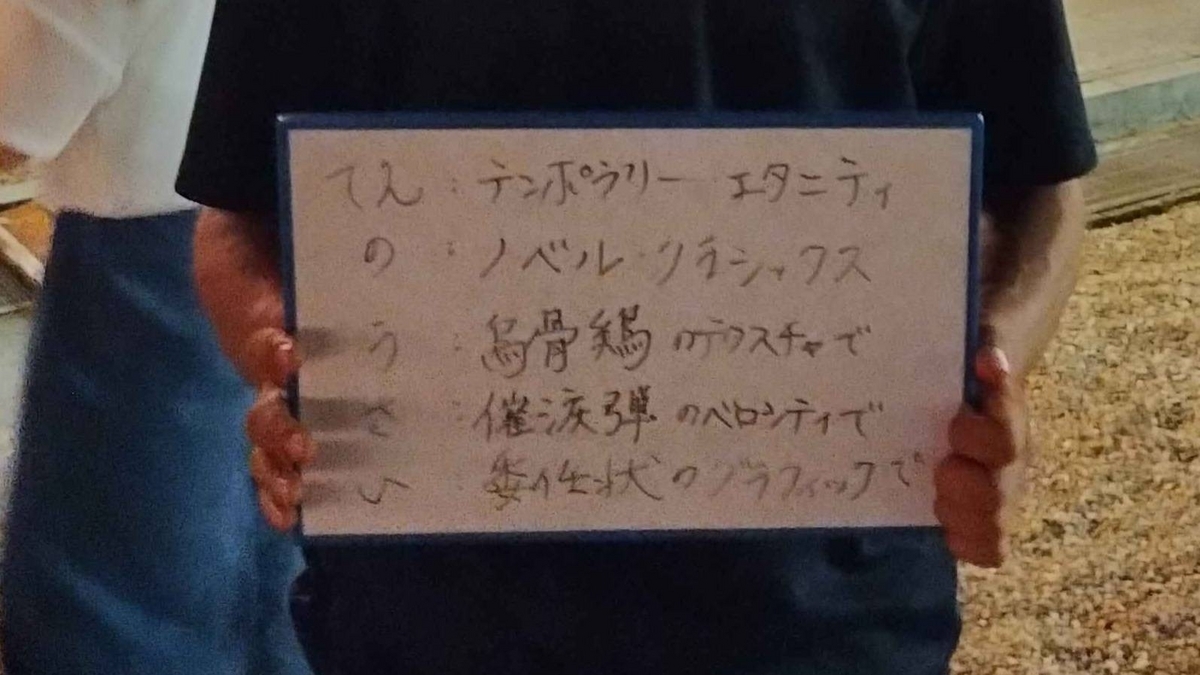 てん：テンポラリー エタニティ
の：ノベル・クラシックス
う：烏骨鶏のテクスチャで
さ：催涙弾のベロシティで
い：委任状のグラフィックで